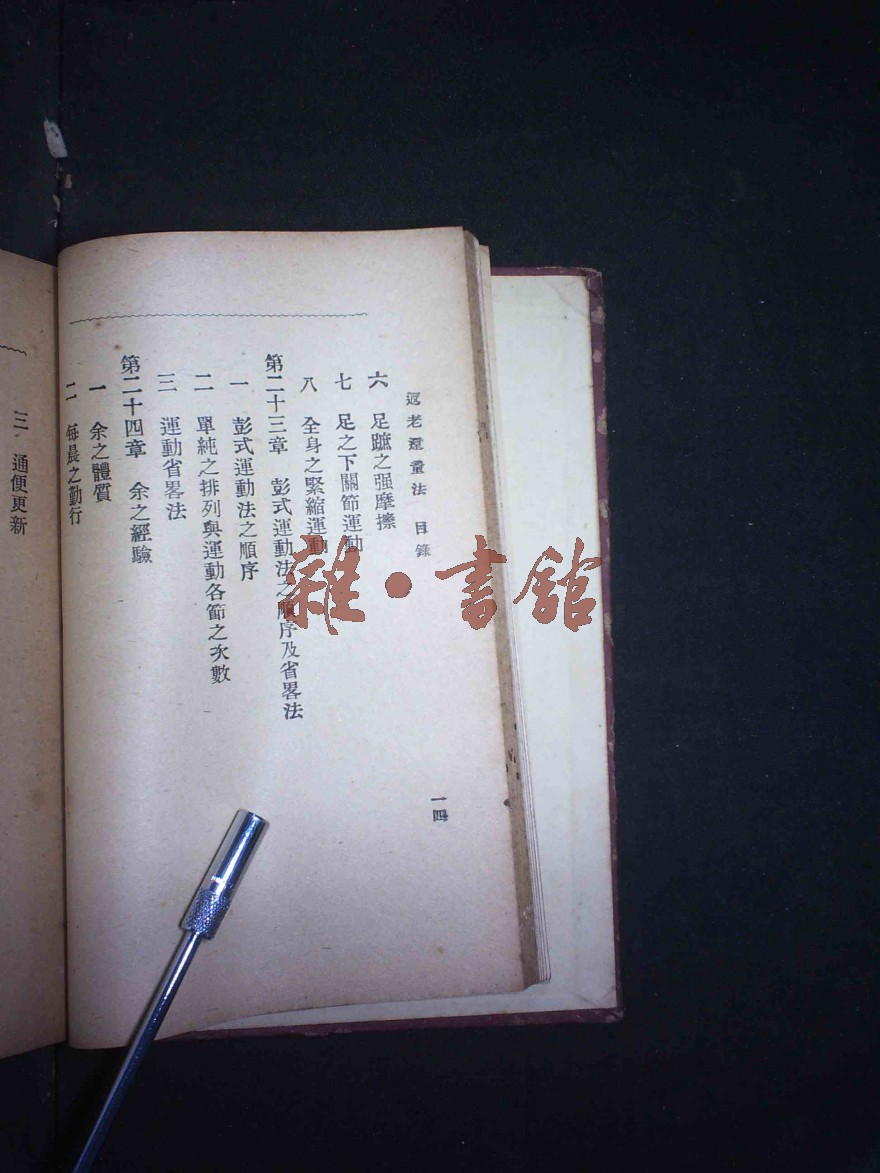 返老還童法 目錄
六 足蹠之强摩擦
七 足之下關節運動
八 全身之緊縮運動
第二十三章 彭式運動法之順序及省畧法
一 彭式運動法之順序
二 單純之排列與運動各節之次數
三 運動省畧法
第二十四章 余之經驗
一 余之體質
二 每晨之勤行
一四
三 通便更新
雜·書館